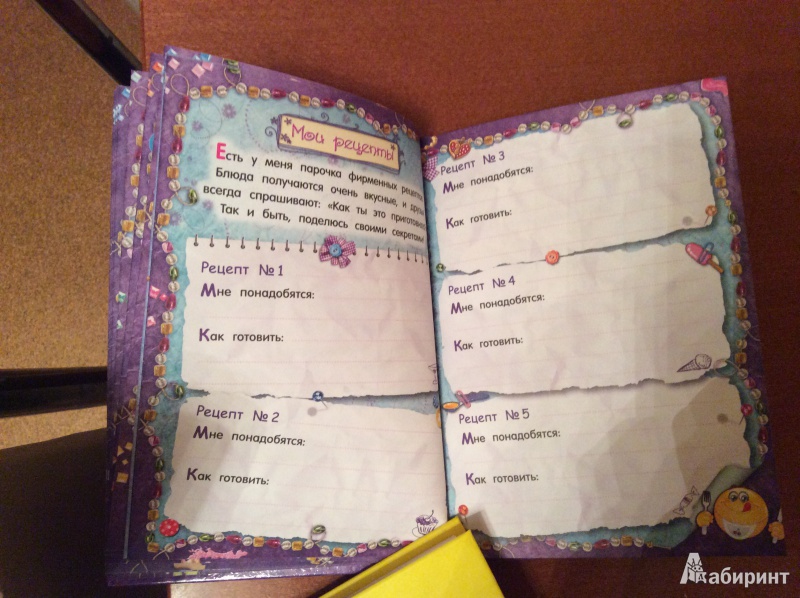 Мои рецепты
Есть у меня парочка фирменных
Блюда получаются очень вкусные, и
всегда спрашивают: «Как ты это
Так и быть, поделюсь своими секретом!
Рецепт № 1
Мне понадобятся:
Как готовить:
Рецепт № 2
Мне понадобятся:
Как готовить:
Рецепт № 3
Мне понадобятся:
Как готовить:
Рецепт № 4
Мне понадобятся:
Как готовить:
Рецепт № 5
Мне понадобятся:
Как готовить:
Лабиринт